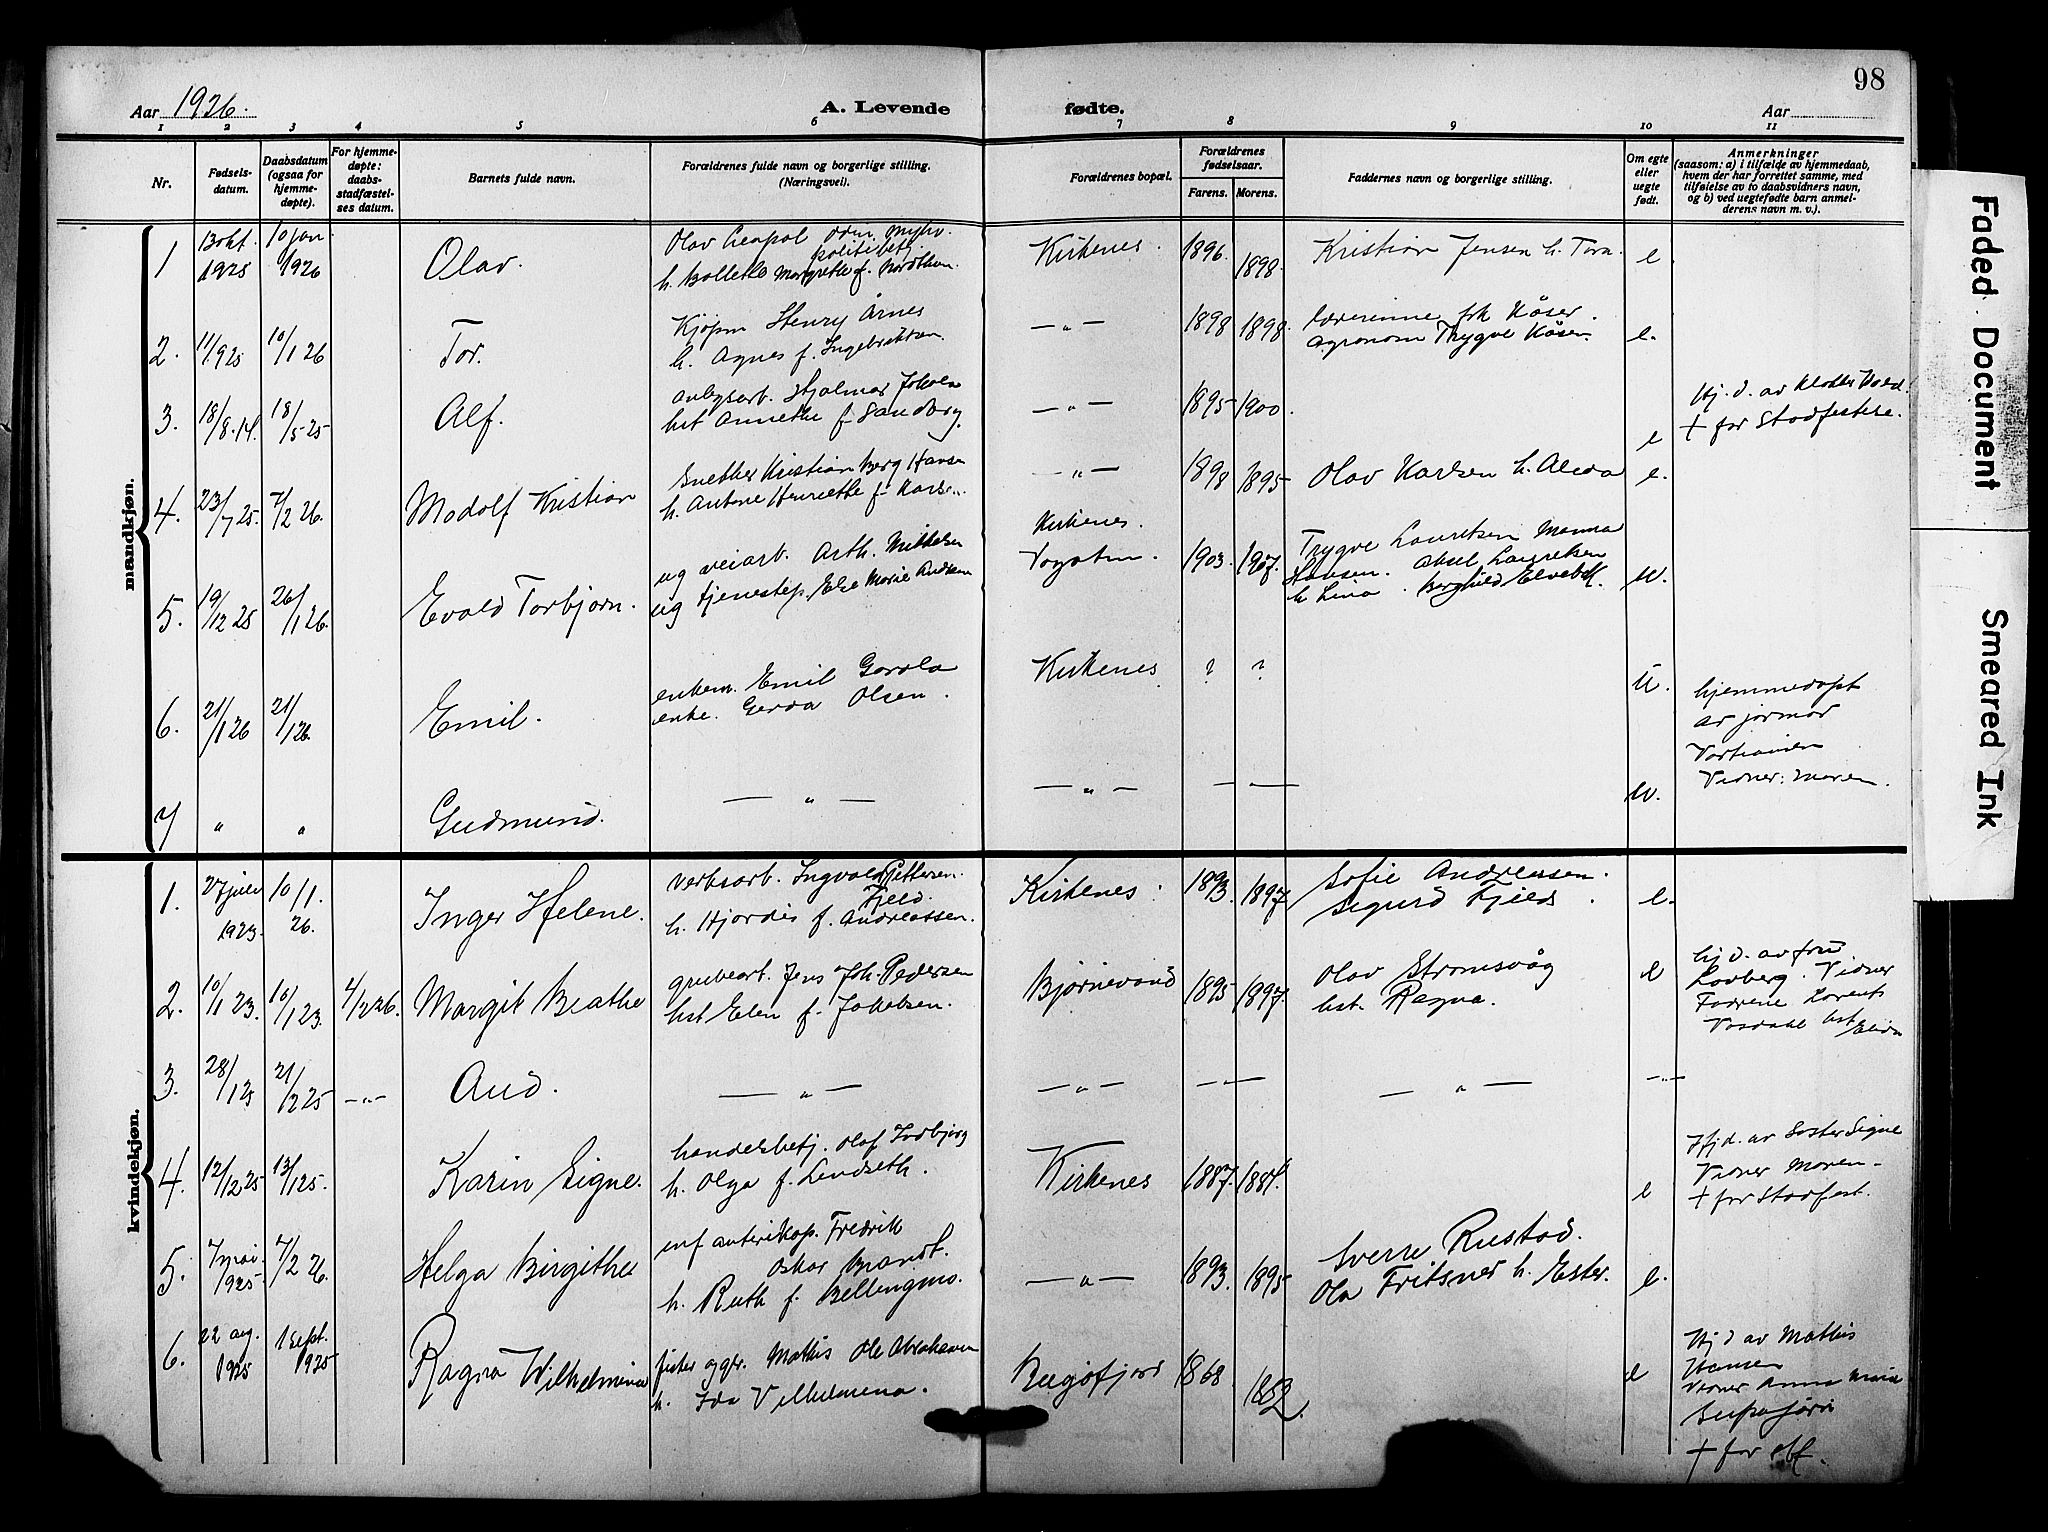 98
Aar 1926.
A. Levende fødte.
Aar
1 2 3 4 5 6 7 8 9 10 11
Nr.
Fødsels-
datum.
Daabsdatum
(ogsaa for
hjemme-
døpte).
For hjemme-
døpte:
daabs-
stadfæstel-
ses datum.
Barnets fulde navn.
Forældrenes fulde navn og borgerlige stilling.
(Næringsvei).
Forældrenes bopæl.
Forældrenes
fødselsaar.
Farens. Morens.
Faddernes navn og borgerlige stilling.
Om egte
eller
uegte
født.
Anmerkninger
(saasom: a) i tilfælde av hjemmedaab,
hvem der har forrettet samme, med
tilføielse av to daabsvidners navn,
og b) ved uegtefødte barn anmel-
derens navn m. v.).
mandkjøn.
1 13 okt. 1925 10 jan 1926 Olav.
Olav
politibetj.
h. Bollette Margrethe f.
Kirkenes. 1896 1898. Kristian Jensen h. Tora. e.
2. 11/9 25 10/1 26 Tor.
Kjøpm Henry Årnes
h. Agnes f. Ingebriktsen.
— " — 1898 1898.
lærerinne frk Kåser.
agronom Trygve Kåsen. e.
3. 18/8.14. 18/5-25 Alf.
anlegsarb. Hjalmar
hst Annethe f. Sandberg.
— " — 1895 1900. e
Hj. d. av
+ før Stadfestese.
4. 23/7 25. 7/2 26. Modolf Kristian
Snekker Kristian Berg Hansen
h. Antone Henriette f.
— " — 1898 1895 Olav Karlsen h. Aleda e.
5. 19/12 25 26/1 26. Evald Torbjørn.
ug veiarb. Arth. Mikkelsen
ug tjenestep. Else Marie Andersen
Kirkenes.
1903 1907.
Trygve Lauretsen Manna
Hansen. Aksel Lauretsen
h Lina. Berghild Elvebak. u.
6. 21/1 26 21/1 26. Emil.
enkem. Emil
enke. Gerda Olsen.
Kirkenes ? ? u.
hjemmedøpt
av jormor
Vidner: Moren.
7 " " Gudmund.
— " — — " — — " — u.
kvindekjøn.
1. 27 juli 1923. 10/1. 26. Inger Helene.
verksarb. Ingvald Pettersen
Fjeld.
h. Hjordis f. Andreassen.
Kirkenes: 1893. 1897
Sofie Andreassen.
Sigurd Fjeld. e.
2. 10/1 23. 10/1 23. 4/2 26. Margit Beathe
grubearb. Jens Joh. Pedersen
hst Elen f. Jakobsen.
Bjørnevand 1895 1897.
Olav Strømsvåg
hst. Ragna. e
hj d. av fru
Lovberg. Vidner
Fadrene Lorents
hst
3. 28/1 25 21/2 25 — " — Aud.
— " — — " — — " — — " — — " —
4. 12/12 25 13/1 25. Karin Signe.
handelsbetj. Olaf
h. Olga f. Lindseth.
Kirkenes 1887. 1884. e
Hj d. av Søster Signe
Vidner Moren -
+ før Stadfest.
5. 7 mai 1925 7/2 26. Helga Birgithe
Fredrik
Oskar Brandt.
h. Ruth f. Bellingmo.
— " — 1893. 1895
Sverre Rustad.
Ola Fritsner h. Ester. e.
6. 22 aug. 1925 1 Sept. 1925 Ragna Wilhelmina
fisker og gr. Mathis Ole Abrahamsen
h. Ida Vilhelmena.
Bugøfjord 1868 1882. e
Hj d av Mathis
Hansen
Vidner Anna Maria
+ før
Faded Document
Smeared Ink